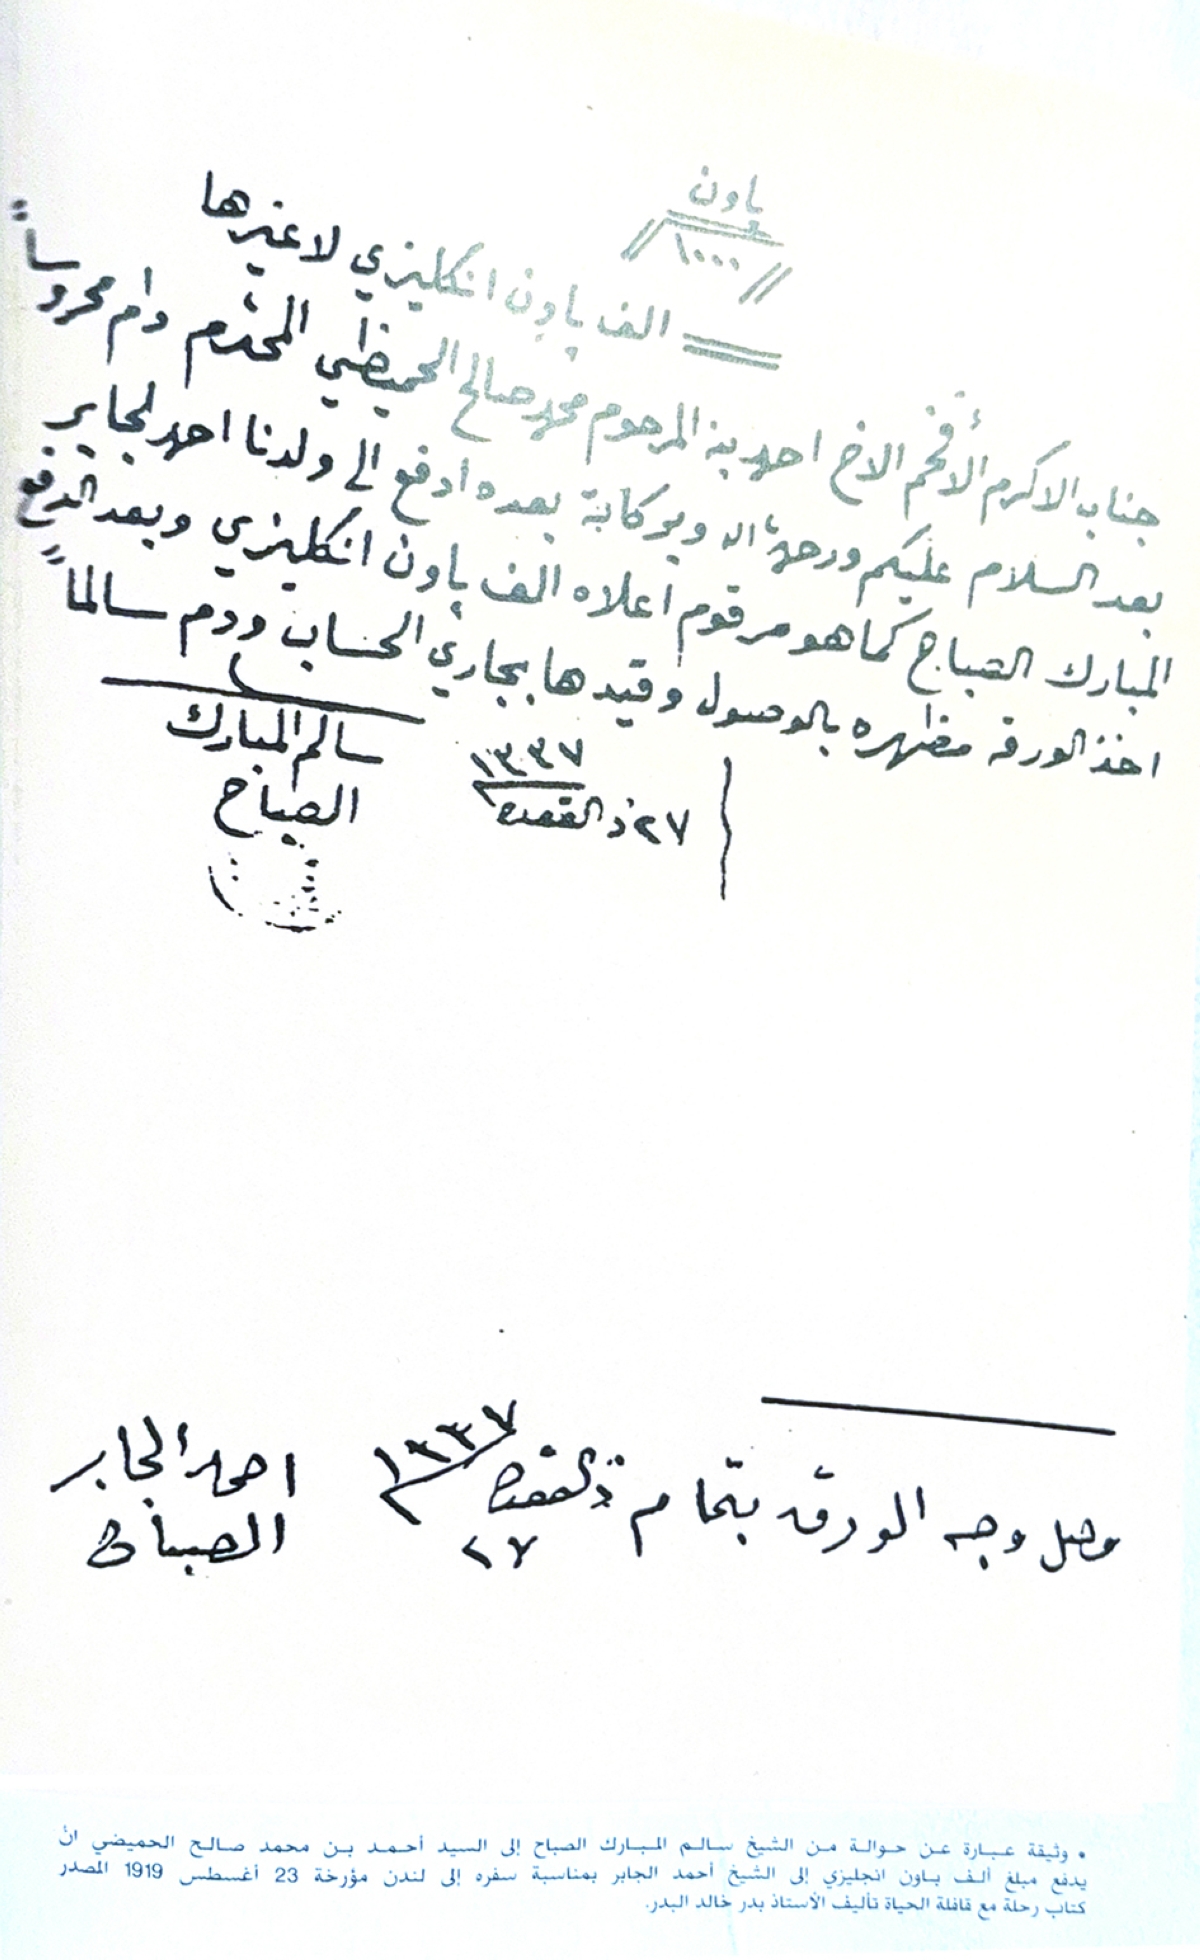 باون
١٠٠٠
الف باون انكليزي لاغيرها
جناب الاكرم الافخم الاخ احمد بن المرحوم محمد صالح الحميظي المحترم دام محروساً
بعد السلام عليكم ورحمة الله وبركاته بعده ادفع الى ولدنا احمد الجابر
المبارك الصباح كما هو مرقوم اعلاه الف باون انكليزي وبعد الدفع
اخذ الورقه مظهره بالوصول وقيدها بجاري الحساب ودم سالماً
١٣٣٧
٢٧ ذ القعده
سالم المبارك
الصباح
وصل وجه الورقه بتمام
٢٧ ذ القعده ١٣٣٧
احمد الجابر
الصباح
• وثيقة عبارة عن حوالة من الشيخ سالم المبارك الصباح إلى السيد أحمد بن محمد صالح الحميضي انْ
يدفع مبلغ ألف باون انجليزي إلى الشيخ أحمد الجابر بمناسبة سفره إلى لندن مؤرخة 23 أغسطس 1919 المصدر
كتاب رحلة مع قافلة الحياة تأليف الأستاذ بدر خالد البدر.